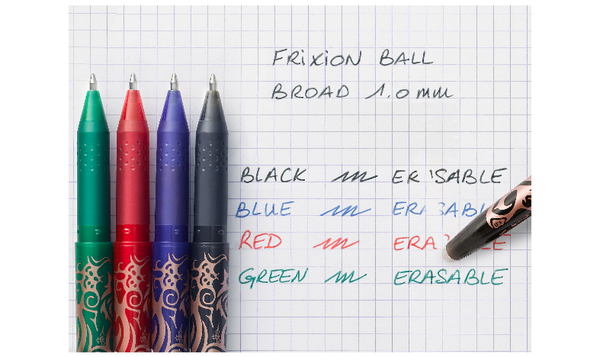 FRiXiON BALL
BROAD 1.0 mm
BLACK ER SABLE
BLUE
RED
GREEN ERASABLE